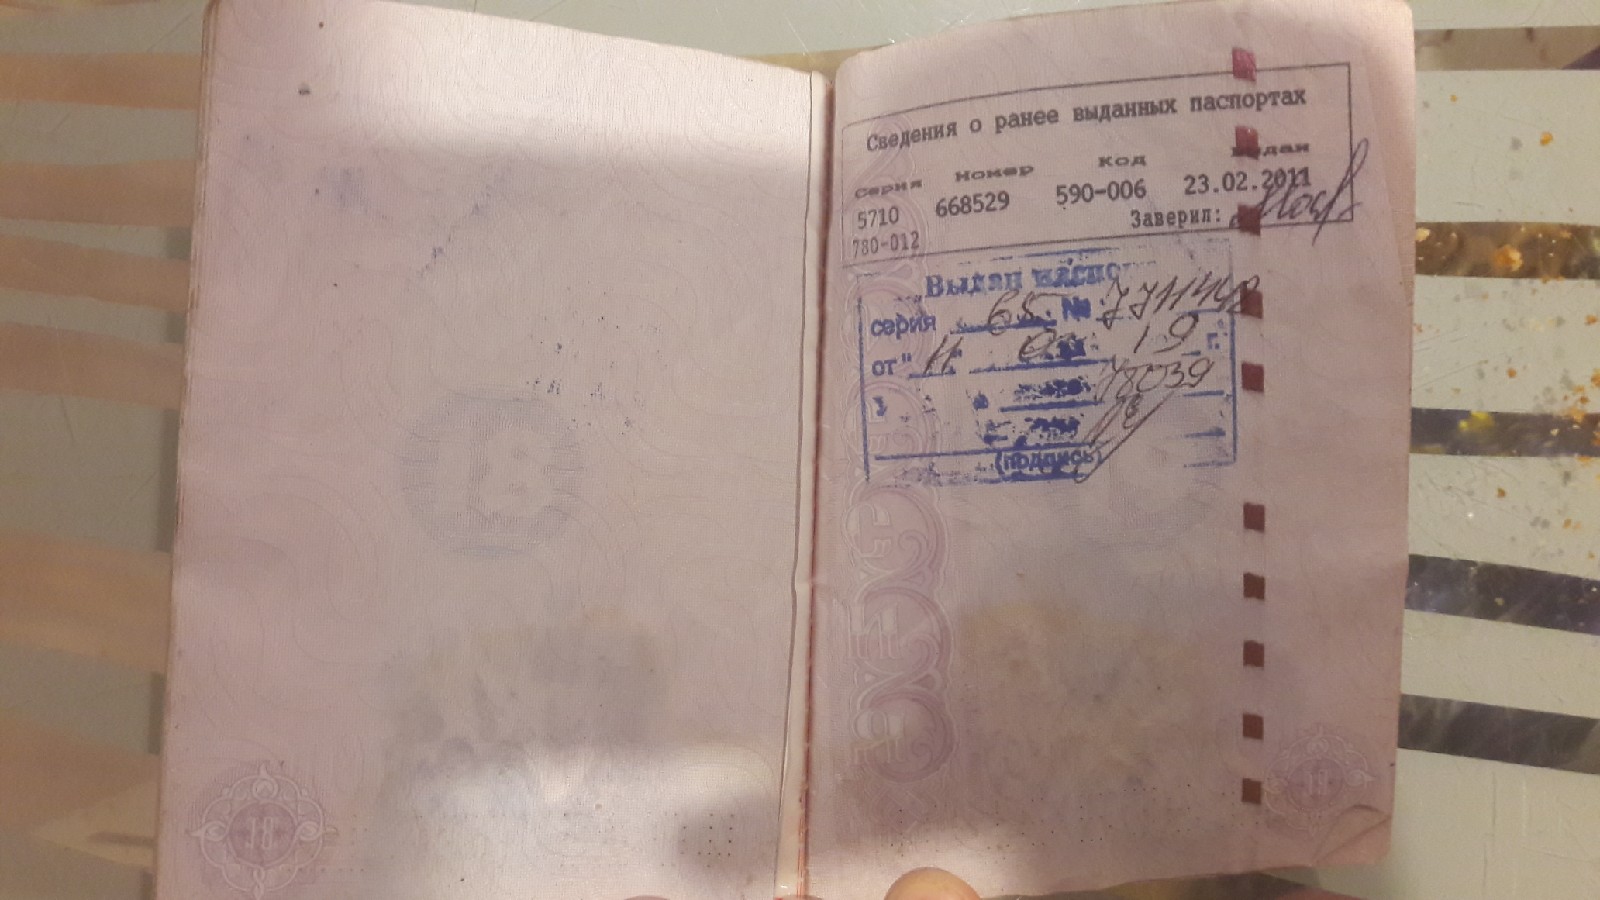 Сведения о ранее выданных паспортах
Серия Номер Код Выдан
5710 668529 590-006 23.02.2011
780-012 Заверил:
Выдан паспо
серия 65 № 771144
от " 11 " 19 г.
78039
(подпись)
18